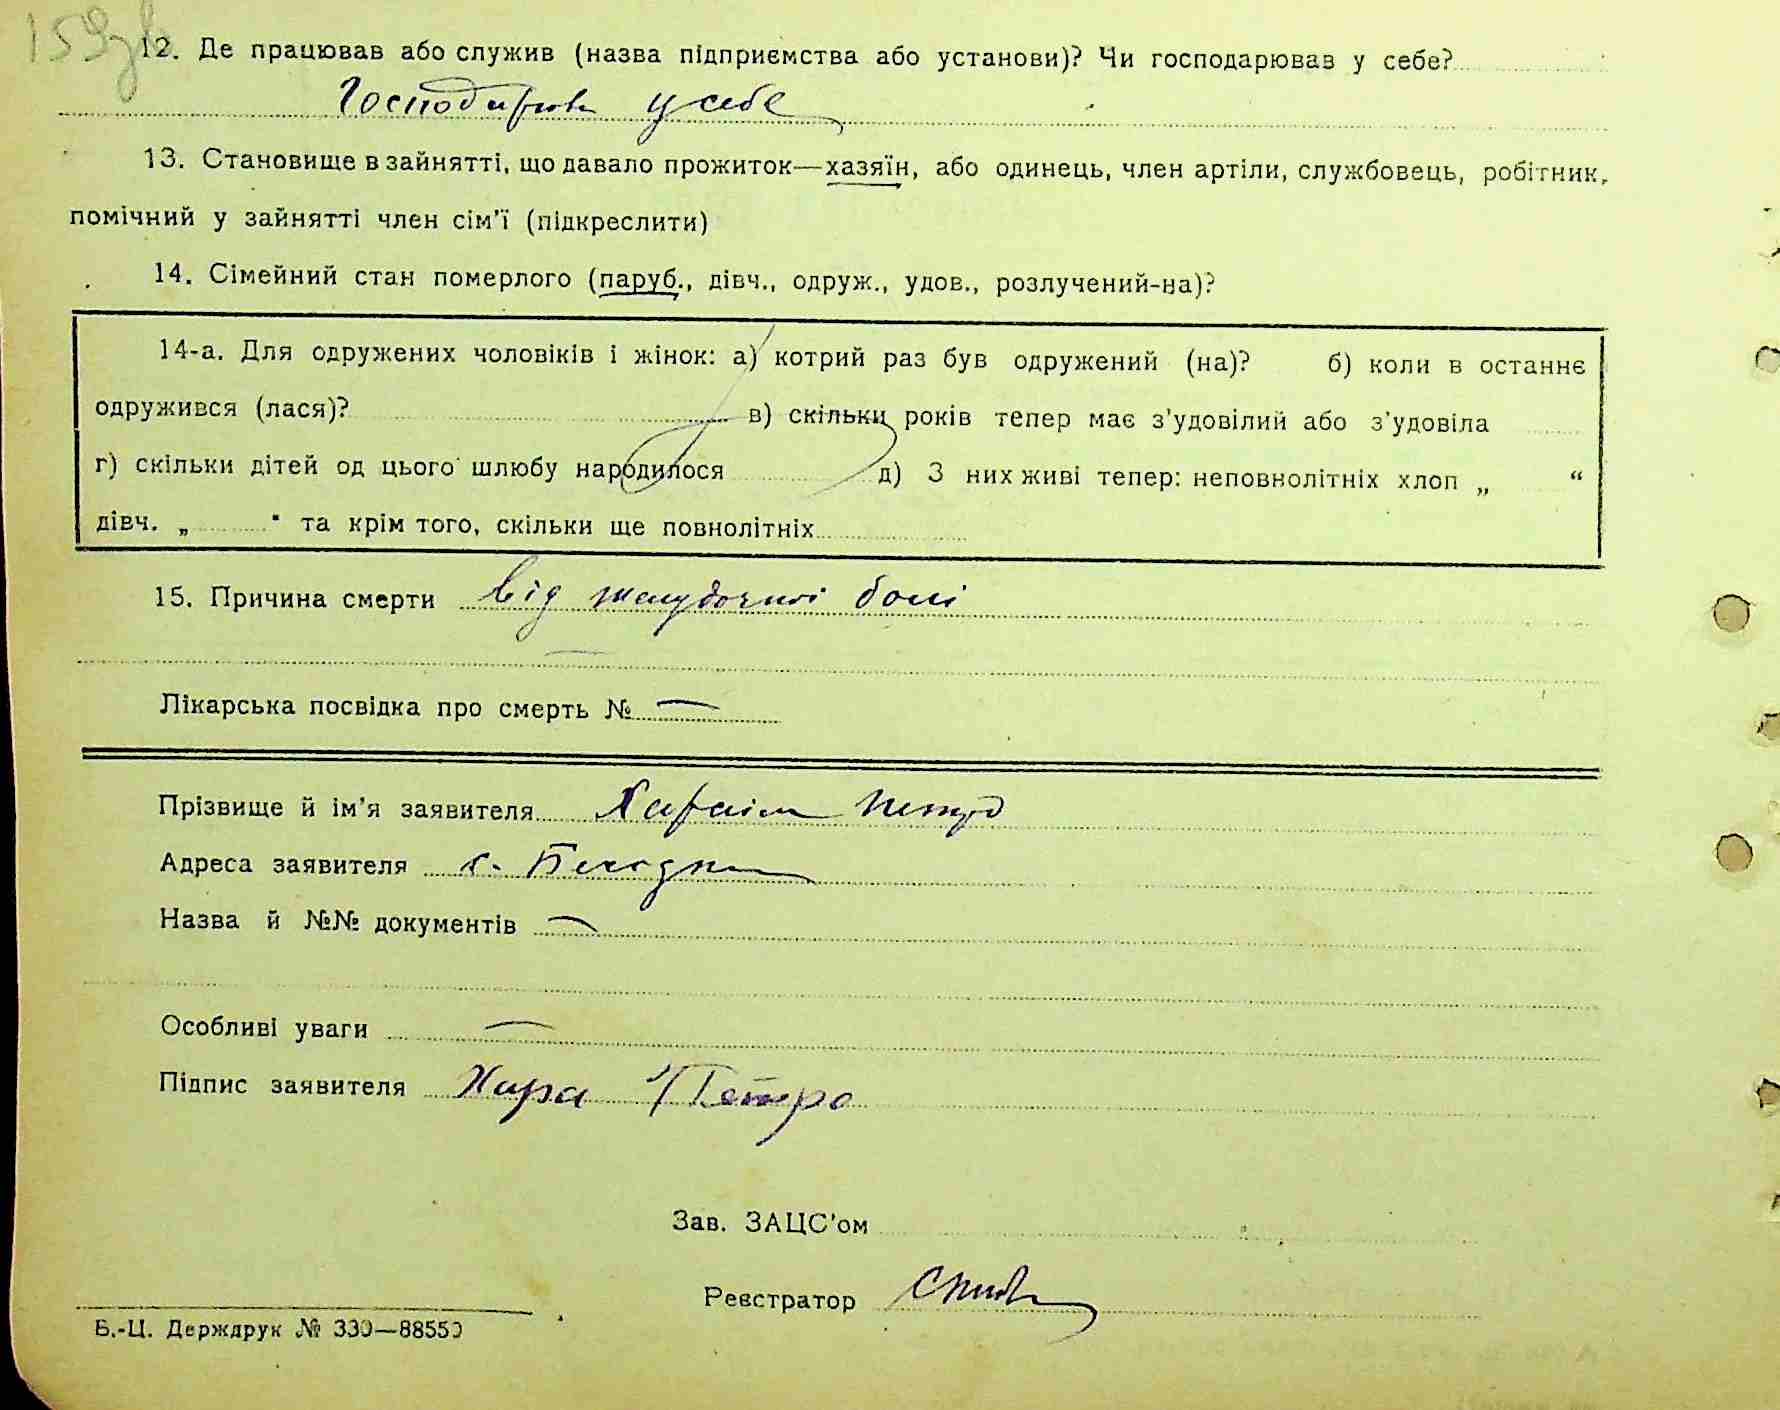 159зв
12. Де працював або служив (назва підприємства або установи)? Чи господарював у себе?
Господарював у себе
13. Становище в зайнятті, що давало прожиток—хазяїн, або одинець, член артіли, службовець, робітник,
помічний у зайнятті член сім'ї (підкреслити)
14. Сімейний стан померлого (паруб., дівч., одруж., удов., розлучений-на)?
14-а. Для одружених чоловіків і жінок: а) котрий раз був одружений (на)? б) коли в останнє
одружився (лася)? в) скільки років тепер має з'удовілий або з'удовіла
г) скільки дітей од цього шлюбу народилося д) З них живі тепер: неповнолітніх хлоп „ “
дівч. „ “ та крім того, скільки ще повнолітніх
15. Причина смерти від желудочної болі
Лікарська посвідка про смерть № —
Прізвище й ім'я заявителя Петро
Адреса заявителя с.
Назва й №№ документів —
Особливі уваги —
Підпис заявителя Хара Петро
Зав. ЗАЦС'ом
Реєстратор
Б.-Ц. Держдрук № 330—88550